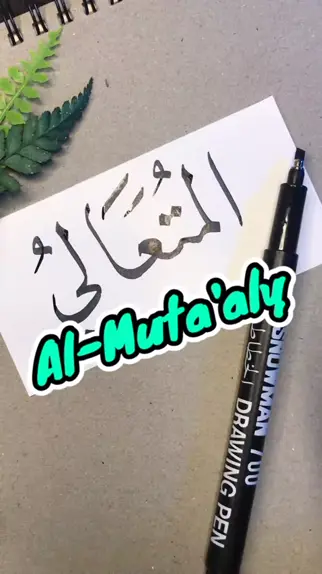 المُتَعَالِيُ
Al-Muta'aly
SNOWMAN 700
DRAWING PEN